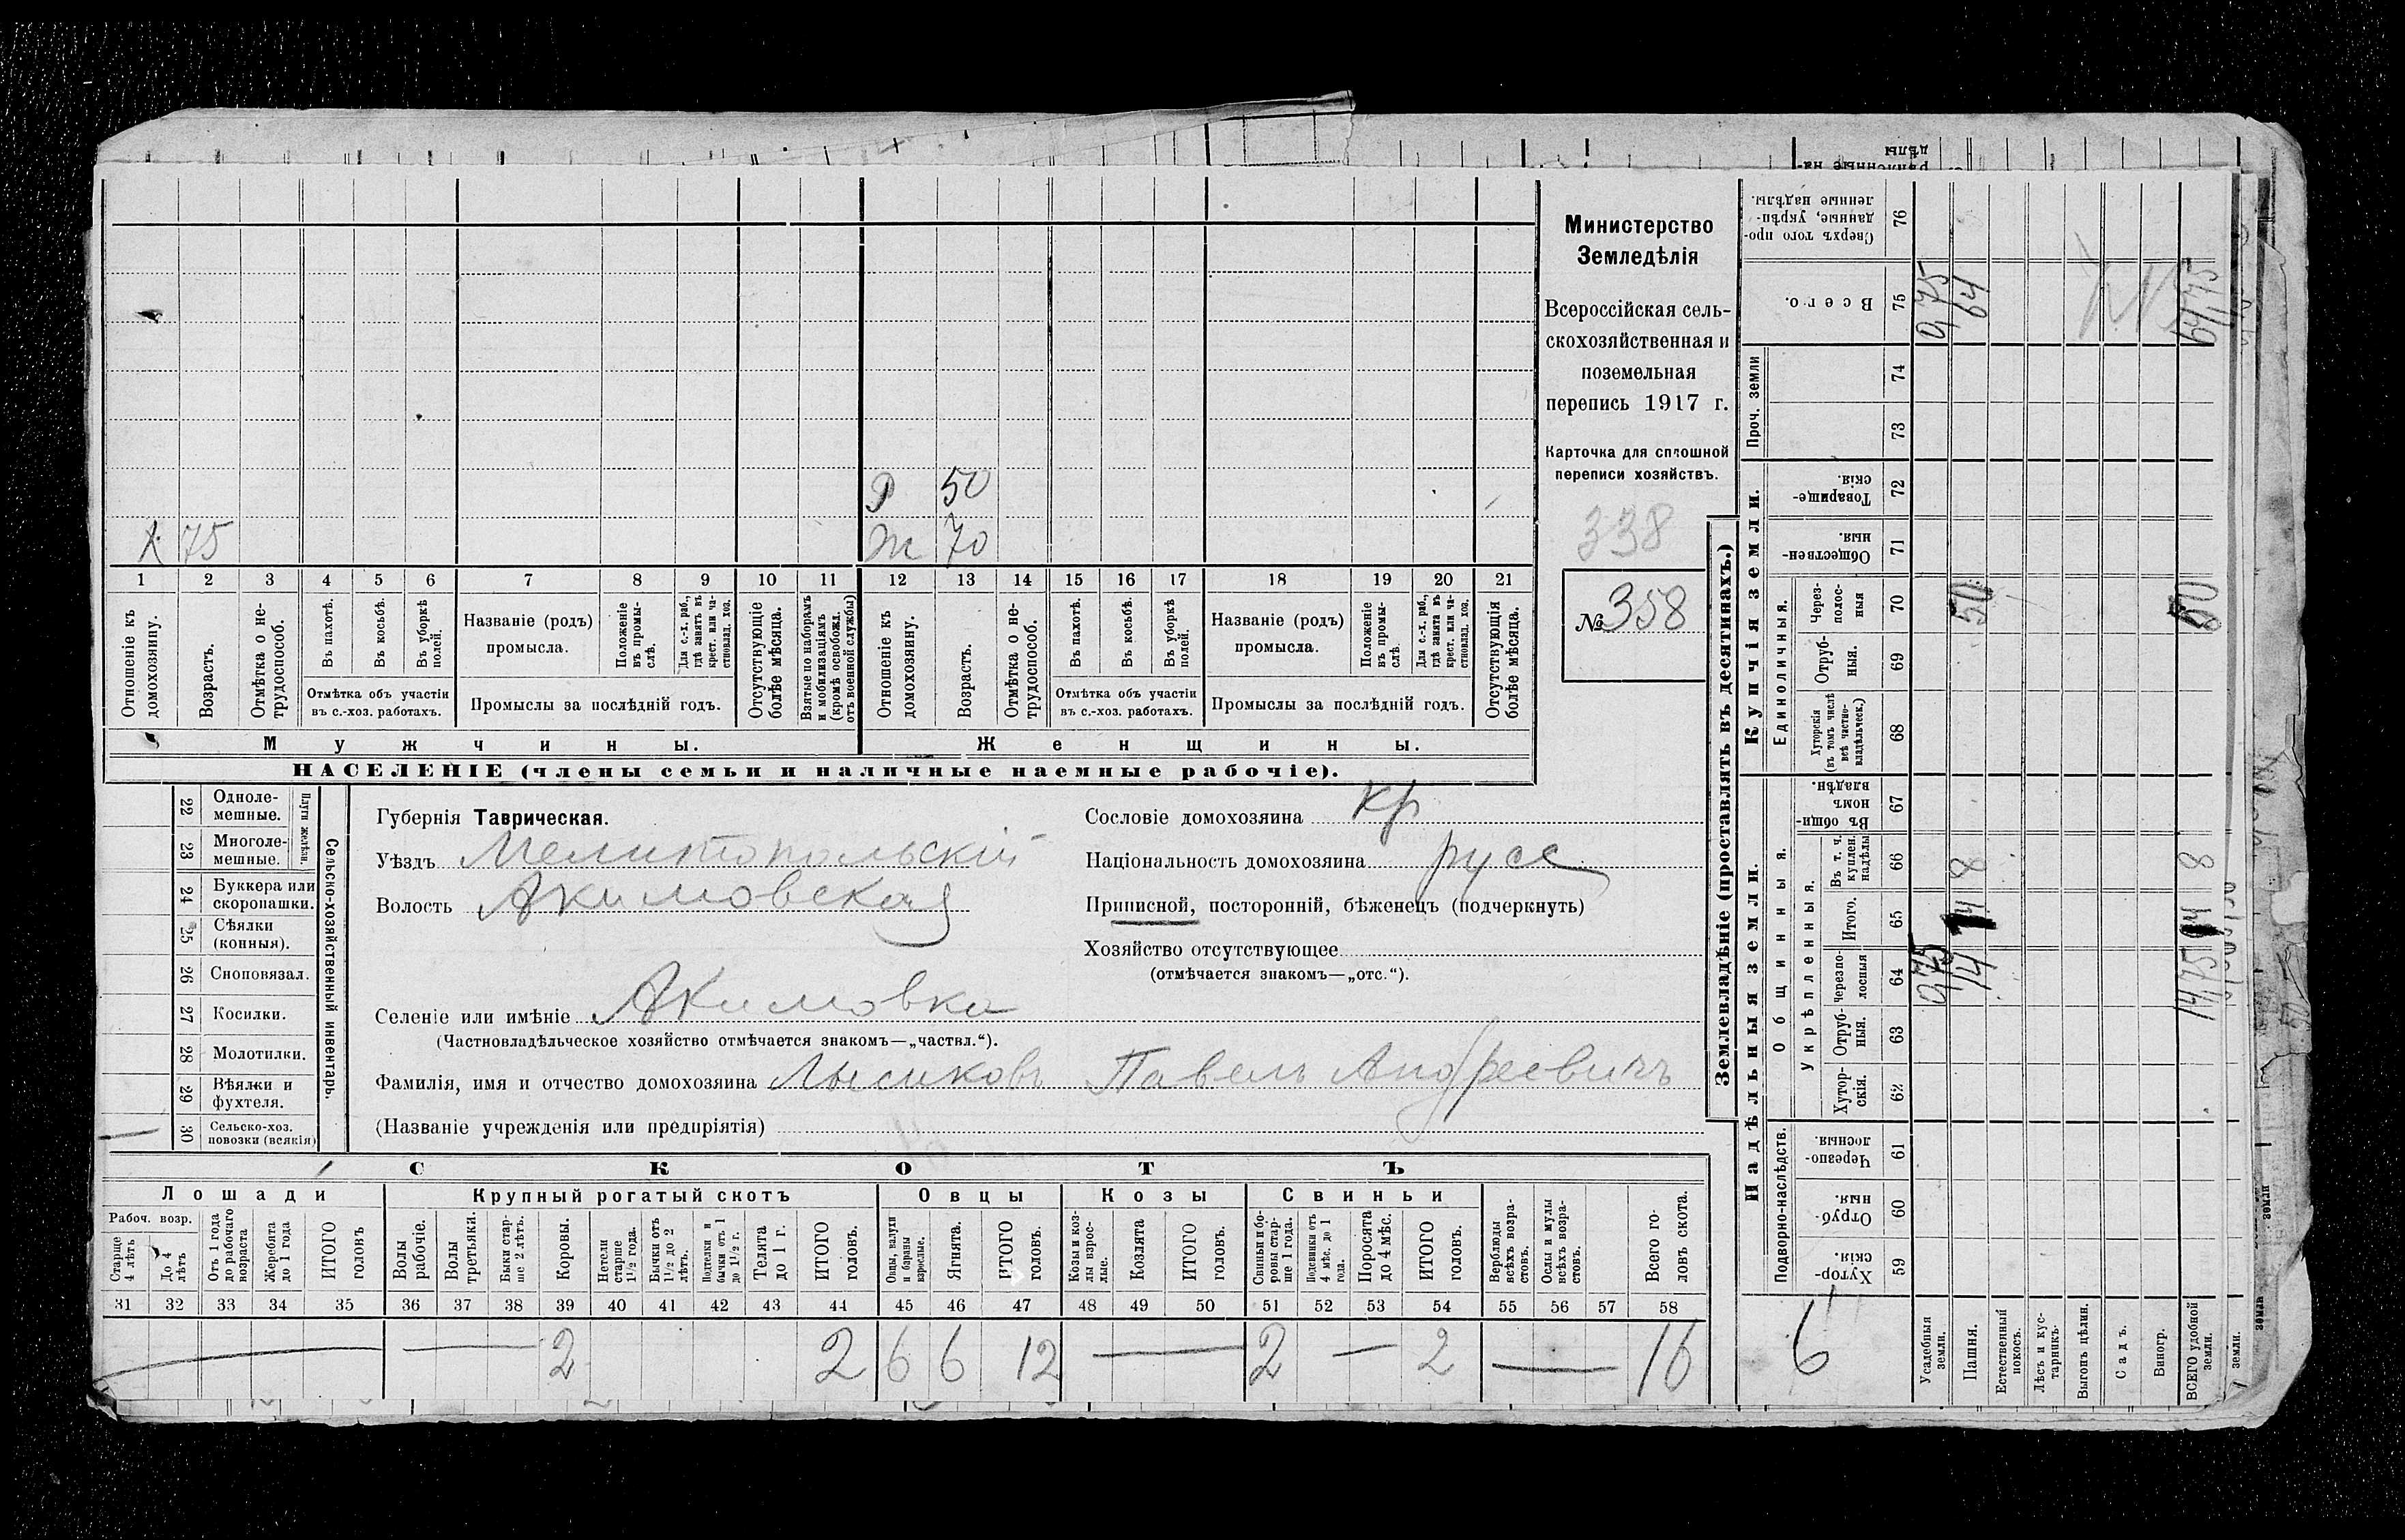 Министерство
Земледѣлія
Всероссійская сель-
скохозяйственная и
поземельная
перепись 1917 г.
Карточка для сплошной
переписи хозяйствъ.
338
№ 358
Р 50
Х 75 Ж 70
1 2 3 4 5 6 7 8 9 10 11 12 13 14 15 16 17 18 19 20 21
Отношеніе къ домохозяину.
Возрастъ.
Отмѣтка о не-трудоспособ.
Въ пахотѣ.
Въ косьбѣ.
Въ уборкѣ полей.
Отмѣтка объ участіи
въ с.-хоз. работахъ.
Названіе (родъ)
промысла.
Положеніе въ промы-слѣ.
Для с.-х. раб., гдѣ занятъ въ крест. или ча-стновлад. хоз.
Промыслы за послѣдній годъ.
Отсутствующіе болѣе мѣсяца.
Взятые по наборамъ и мобилизаціямъ (кромѣ освобожд. отъ военной службы)
Отношеніе къ домохозяину.
Возрастъ.
Отмѣтка о не-трудоспособ.
Въ пахотѣ.
Въ косьбѣ.
Въ уборкѣ полей.
Отмѣтка объ участіи
въ с.-хоз. работахъ.
Названіе (родъ)
промысла.
Положеніе въ промы-слѣ.
Для с.-х. раб., гдѣ занята въ крест. или ча-стновлад. хоз.
Промыслы за послѣдній годъ.
Отсутствующія болѣе мѣсяца.
Мужчины. Женщины.
НАСЕЛЕНІЕ (члены семьи и наличные наемные рабочіе).
22 Одноле-мешные.
23 Многоле-мешные.
Плуги желѣзн.
24 Буккера или скоропашки.
25 Сѣялки (конныя).
26 Сноповязал.
27 Косилки.
28 Молотилки.
29 Вѣялки и фухтеля.
30 Сельско-хоз. повозки (всякія)
Сельско-хозяйственный инвентарь.
Губернія Таврическая.
Уѣздъ Мелитопольскій
Волость Акимовская
Селеніе или имѣніе Акимовка
(Частновладѣльческое хозяйство отмѣчается знакомъ—„частвл.“).
Фамилія, имя и отчество домохозяина Лысиковъ Павелъ Андреевичъ
(Названіе учрежденія или предпріятія)
Сословіе домохозяина кр
Національность домохозяина русс
Приписной, посторонній, бѣженецъ (подчеркнуть)
Хозяйство отсутствующее
(отмѣчается знакомъ—„отс.“).
СКОТЪ
Лошади Крупный рогатый скотъ Овцы Козы Свиньи
Рабоч. возр.
Старще 4 лѣтъ
До 4 лѣтъ
Отъ 1 года до рабочаго возраста
Жеребята до 1 года
ИТОГО головъ
Волы рабочіе.
Волы третьяки.
Быки стар-ше 2 лѣтъ.
Коровы.
Нетели старше 1½ года.
Бычки отъ 1½ до 2 лѣтъ.
Подтелки и бычки отъ 1 до 1½ г.
Телята до 1 г.
ИТОГО головъ.
Овцы, валухи и бараны взрослые.
Ягнята.
ИТОГО головъ.
Козы и коз-лы взрос-лые.
Козлята
ИТОГО головъ.
Свиньи и бо-ровы стар-ше 1 года.
Подсвинки отъ 4 мѣс. до 1 года.
Поросята до 4 мѣс.
ИТОГО головъ.
Верблюды всѣхъ возра-стовъ.
Ослы и мулы всѣхъ возра-стовъ.
Всего го-ловъ скота.
31 32 33 34 35 36 37 38 39 40 41 42 43 44 45 46 47 48 49 50 51 52 53 54 55 56 57 58
— — 2 2 6 6 12 — 2 — 2 — 16
Землевладѣніе (проставлять въ десятинахъ.)
Надѣльныя земли. Купчія земли. Проч. земли
Подворно-наслѣдств.
Общинныя.
Укрѣпленныя.
Единоличныя.
Хутор-скія. 59
Отруб-ныя. 60
Черезпо-лосныя. 61
Хутор-скія. 62
Отруб-ныя. 63
Черезпо-лосныя 64
Итого. 65
Въ т. ч. куплен. надѣлы 66
Въ общи-номъ владѣн. 67
Хуторскія (въ томъ числѣ всѣ частно-владѣльческ.) 68
Отруб-ныя. 69
Через-полос-ныя 70
Обществен-ныя. 71
Товарище-скія. 72
73
74
Всего. 75
Сверхъ того про-данные, укрѣп-ленные надѣлы. 76
6
Усадебныя земли. 0,75 0,75
Пашня. 14 14 8 50 64
Естественный покосъ.
Лѣсъ и кус-тарникъ.
Выгонъ цѣлин.
Садъ.
Виногр.
ВСЕГО удобной земли. 14,75 8 50 64,75
земли.